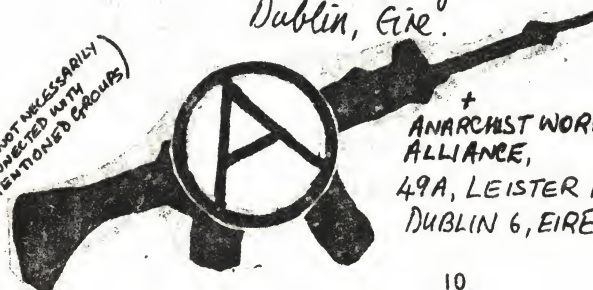 Dublin, Eire.
(NOT NECESSARILY
CONNECTED WITH
MENTIONED GROUPS)
+
ANARCHIST
ALLIANCE,
49A, LEISTER
DUBLIN 6, EIRE
10